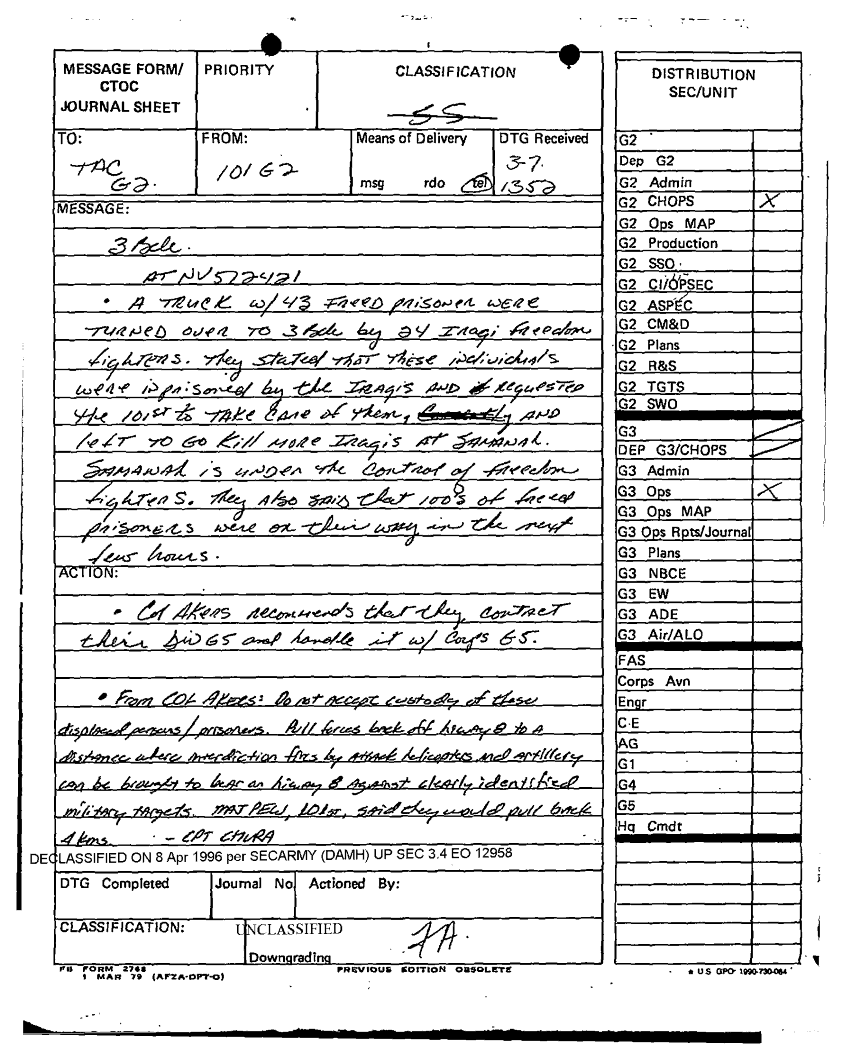 MESSAGE FORM/
CTOC
JOURNAL SHEET
PRIORITY
CLASSIFICATION
TO:
TAC
G2.
FROM:
101 G2
Means of Delivery
msg rdo tel
DTG Received
3-7.
1352
MESSAGE:
3 Bde.
AT NV572421
• A TRUCK w/ 43 Freed prisoner WERE
TURNED over TO 3 Bde by 24 Iraqi freedom
fighters. They stated THAT THESE individuals
were inprisoned by the IRAQIS AND REQUESTED
the 101st to TAKE Care of them, AND
left TO GO Kill MORE Iraqis AT SAMAWAH.
SAMAWAH is UNDER the Control of freedom
fighters. They Also said that 100's of freed
prisoners were on their way in the next
few hours.
ACTION:
• Col AKERS recommends that they, contact
their Div G5 and handle it w/ Corps G5.
• From COL AKERS: Do not accept custody of these
displaced persons/prisoners. Pull forces back off hiway 8 to a
distance where interdiction fires by attack helicopters and artillery
can be brought to bear on hiway 8 against clearly identified
military targets. MAJ PEW, 101st, said they would pull back
4 kms. – CPT CHURA
DECLASSIFIED ON 8 Apr 1996 per SECARMY (DAMH) UP SEC 3.4 EO 12958
DTG Completed
Journal No
Actioned By:
CLASSIFICATION:
UNCLASSIFIED
Downgrading
FB FORM 2768
1 MAR 79 (AFZA-DPT-O)
PREVIOUS EDITION OBSOLETE
DISTRIBUTION
SEC/UNIT
G2
Dep G2
G2 Admin
G2 CHOPS X
G2 Ops MAP
G2 Production
G2 SSO
G2 CI/OPSEC
G2 ASPEC
G2 CM&D
G2 Plans
G2 R&S
G2 TGTS
G2 SWO
G3
DEP G3/CHOPS
G3 Admin
G3 Ops X
G3 Ops MAP
G3 Ops Rpts/Journal
G3 Plans
G3 NBCE
G3 EW
G3 ADE
G3 Air/ALO
FAS
Corps Avn
Engr
CE
AG
G1
G4
G5
Hq Cmdt
★ U S GPO 1990-730-084